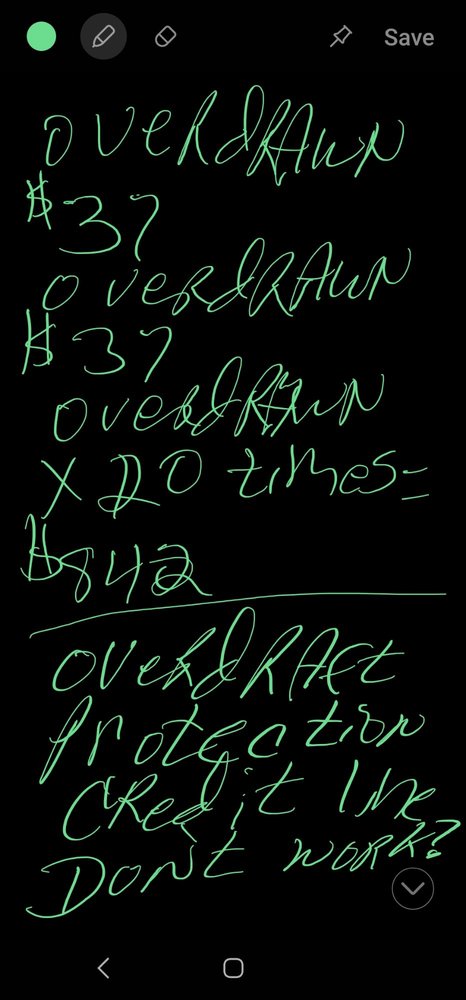 Save
OVERDRAWN
$37
OVERDRAWN
$37
OVERDRAWN
X 20 times=
$842
OVERDRAFt
Protection
CRedit line
DON't WORK?